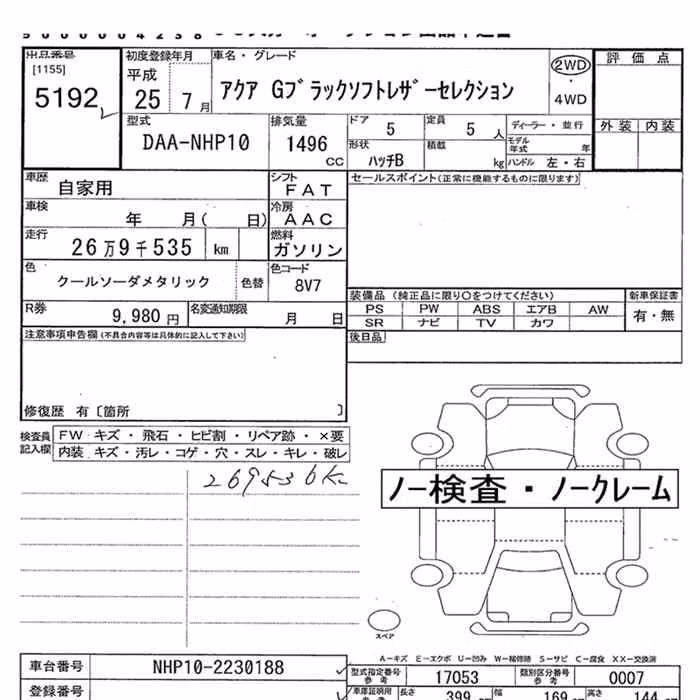 出品番号
[1155]
5192
初度登録年月
平成
25 7月
車名・グレード
アクア Gブラックソフトレザーセレクション
2WD
・
4WD
評価点
外装 内装
型式
DAA-NHP10
排気量
1496
CC
ドア
5
定員
5 人
形状
ハッチB
積載
kg
ディーラー・並行
モデル年式 年
ハンドル 左・右
車歴
自家用
シフト
FAT
車検
年 月( 日)
冷房
AAC
走行
26万9千535 km
燃料
ガソリン
色
クールソーダメタリック
色替
色コード
8V7
R券
9,980 円
名変通知期限
月 日
セールスポイント(正常に機能するものに限ります)
装備品 (純正品に限り○をつけてください)
新車保証書
PS PW ABS エアB AW
有・無
SR ナビ TV カワ
後日品
注意事項申告欄(不具合内容等は具体的に記入して下さい)
修復歴 有〔箇所 〕
検査員記入欄
FW キズ・飛石・ヒビ割・リペア跡・×要
内装 キズ・汚レ・コゲ・穴・スレ・キレ・破レ
269536K
ノー検査・ノークレーム
スペア
A−キズ E−エクボ U−凹み W−補修跡 S−サビ C−腐食 XX−交換済
車台番号
NHP10-2230188
型式指定番号
参考
17053
類別区分番号
参考
0007
登録番号
車庫証明用
参考
長さ
399
幅
169
高さ
144